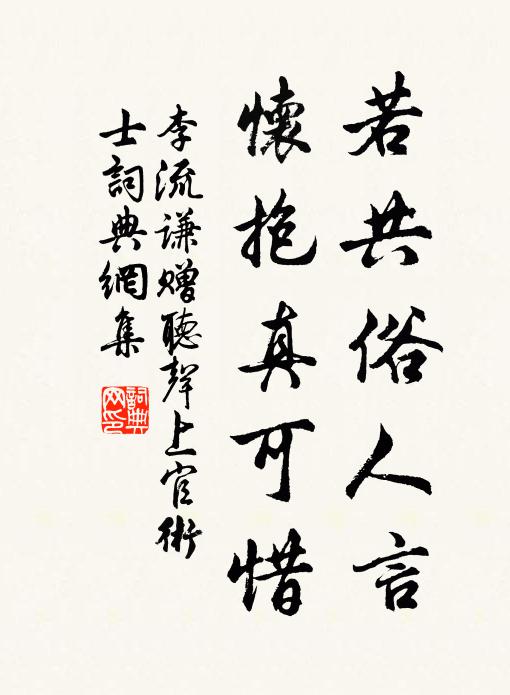 若共俗人言
懷抱真可惜
李流謙贈聽聲上官術
士詞典網集
詞典
网印